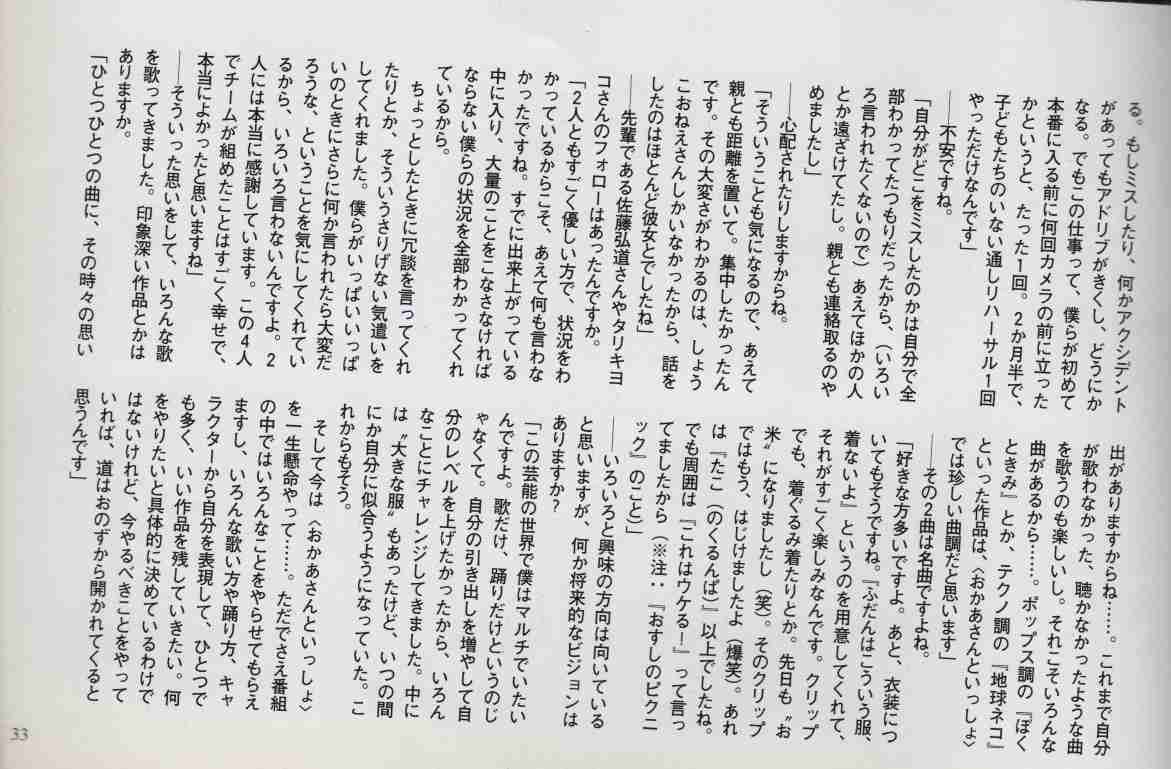 る。もしミスしたり、何かアクシデント
があってもアドリブがきくし、どうにか
なる。でもこの仕事って、僕らが初めて
本番に入る前に何回カメラの前に立った
かというと、たった1回。2か月半で、
子どもたちのいない通しリハーサル1回
やっただけなんです」
――不安ですね。
「自分がどこをミスしたのかは自分で全
部わかってたつもりだったから、(いろい
ろ言われたくないので)あえてほかの人
とか遠ざけてたし。親とも連絡取るのや
めましたし」
――心配されたりしますからね。
「そういうことも気になるので、あえて
親とも距離を置いて。集中したかったん
です。その大変さがわかるのは、しょう
こおねえさんしかいなかったから、話を
したのはほとんど彼女とでしたね」
――先輩である佐藤弘道さんやタリキヨ
コさんのフォローはあったんですか。
「2人ともすごく優しい方で、状況をわ
かっているからこそ、あえて何も言わな
かったですね。すでに出来上がっている
中に入り、大量のことをこなさなければ
ならない僕らの状況を全部わかってくれ
ているから。
ちょっとしたときに冗談を言ってくれ
たりとか、そういうさりげない気遣いを
してくれました。僕らがいっぱいいっぱ
いのときにさらに何か言われたら大変だ
ろうな、ということを気にしてくれてい
るから、いろいろ言わないんですよ。2
人には本当に感謝しています。この4人
でチームが組めたことはすごく幸せで、
本当によかったと思いますね」
――そういった思いをして、いろんな歌
を歌ってきました。印象深い作品とかは
ありますか。
「ひとつひとつの曲に、その時々の思い
出がありますからね……。これまで自分
が歌わなかった、聴かなかったような曲
を歌うのも楽しいし。それこそいろんな
曲があるから……。ポップス調の『ぼく
ときみ』とか、テクノ調の『地球ネコ』
といった作品は、〈おかあさんといっしょ〉
では珍しい曲調だと思います」
――その2曲は名曲ですよね。
「好きな方多いですよ。あと、衣装につ
いてもそうですね。『ふだんはこういう服、
着ないよ』というのを用意してくれて、
それがすごく楽しみなんです。クリップ
でも、着ぐるみ着たりとか。先日も〝お
米〟になりましたし(笑)。そのクリップ
ではもう、はじけましたよ(爆笑)。あれ
は『たこ(のくるんぱ)』以上でしたね。
でも周囲は『これはウケる!』って言っ
てましたから(※注:『おすしのピクニ
ック』のこと)」
――いろいろと興味の方向は向いている
と思いますが、何か将来的なビジョンは
ありますか?
「この芸能の世界で僕はマルチでいたい
んですよ。歌だけ、踊りだけというのじ
ゃなくて。自分の引き出しを増やして自
分のレベルを上げたかったから、いろん
なことにチャレンジしてきました。中に
は〝大きな服〟もあったけど、いつの間
にか自分に似合うようになっていた。こ
れからもそう。
そして今は〈おかあさんといっしょ〉
を一生懸命やって……。ただでさえ番組
の中ではいろんなことをやらせてもらえ
ますし、いろんな歌い方や踊り方、キャ
ラクターから自分を表現して、ひとつで
も多く、いい作品を残していきたい。何
をやりたいと具体的に決めているわけで
はないけれど、今やるべきことをやって
いれば、道はおのずから開かれてくると
思うんです」
33